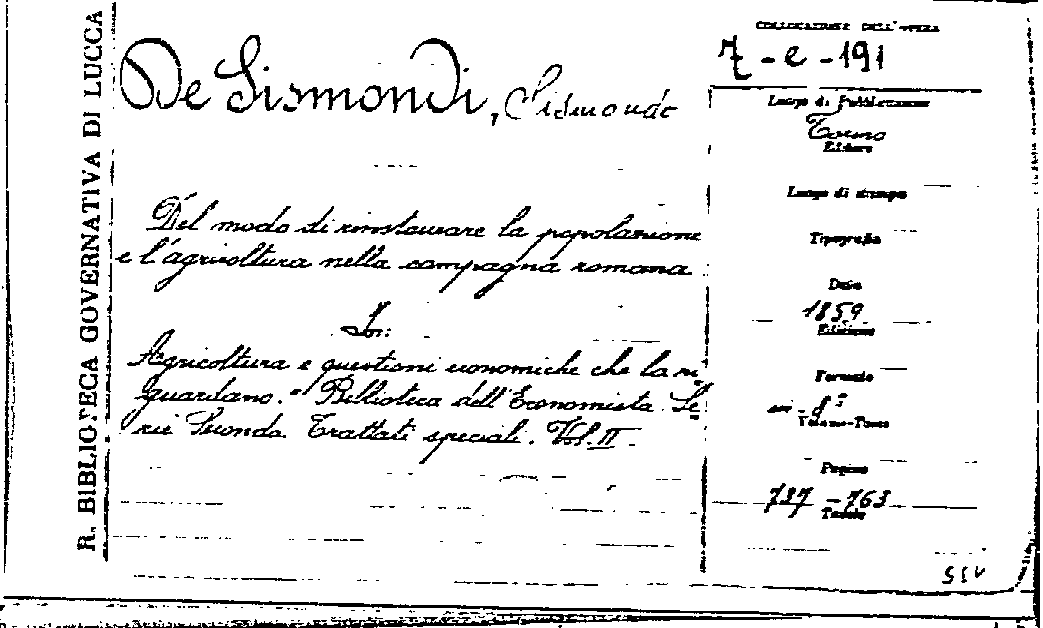 R. BIBLIOTECA GOVERNATIVA DI LUCCA
De Sismondi, Sismondo
Del modo di rinstaurare la popolazione
e l'agricoltura nella campagna romana
In:
Agricoltura e questioni economiche che la ri-
guardano. - Biblioteca dell'Economista. Se-
rie Seconda. Trattati speciali. Vol. II.
COLLOCAZIONE DELL'OPERA
7-e-191
Luogo di Pubblicazione
Torino
Editore
Luogo di stampa
Tipografia
Data
1859
Edizione
Formato
in-8°
Volume-Tomo
Pagine
737-763
Tavole